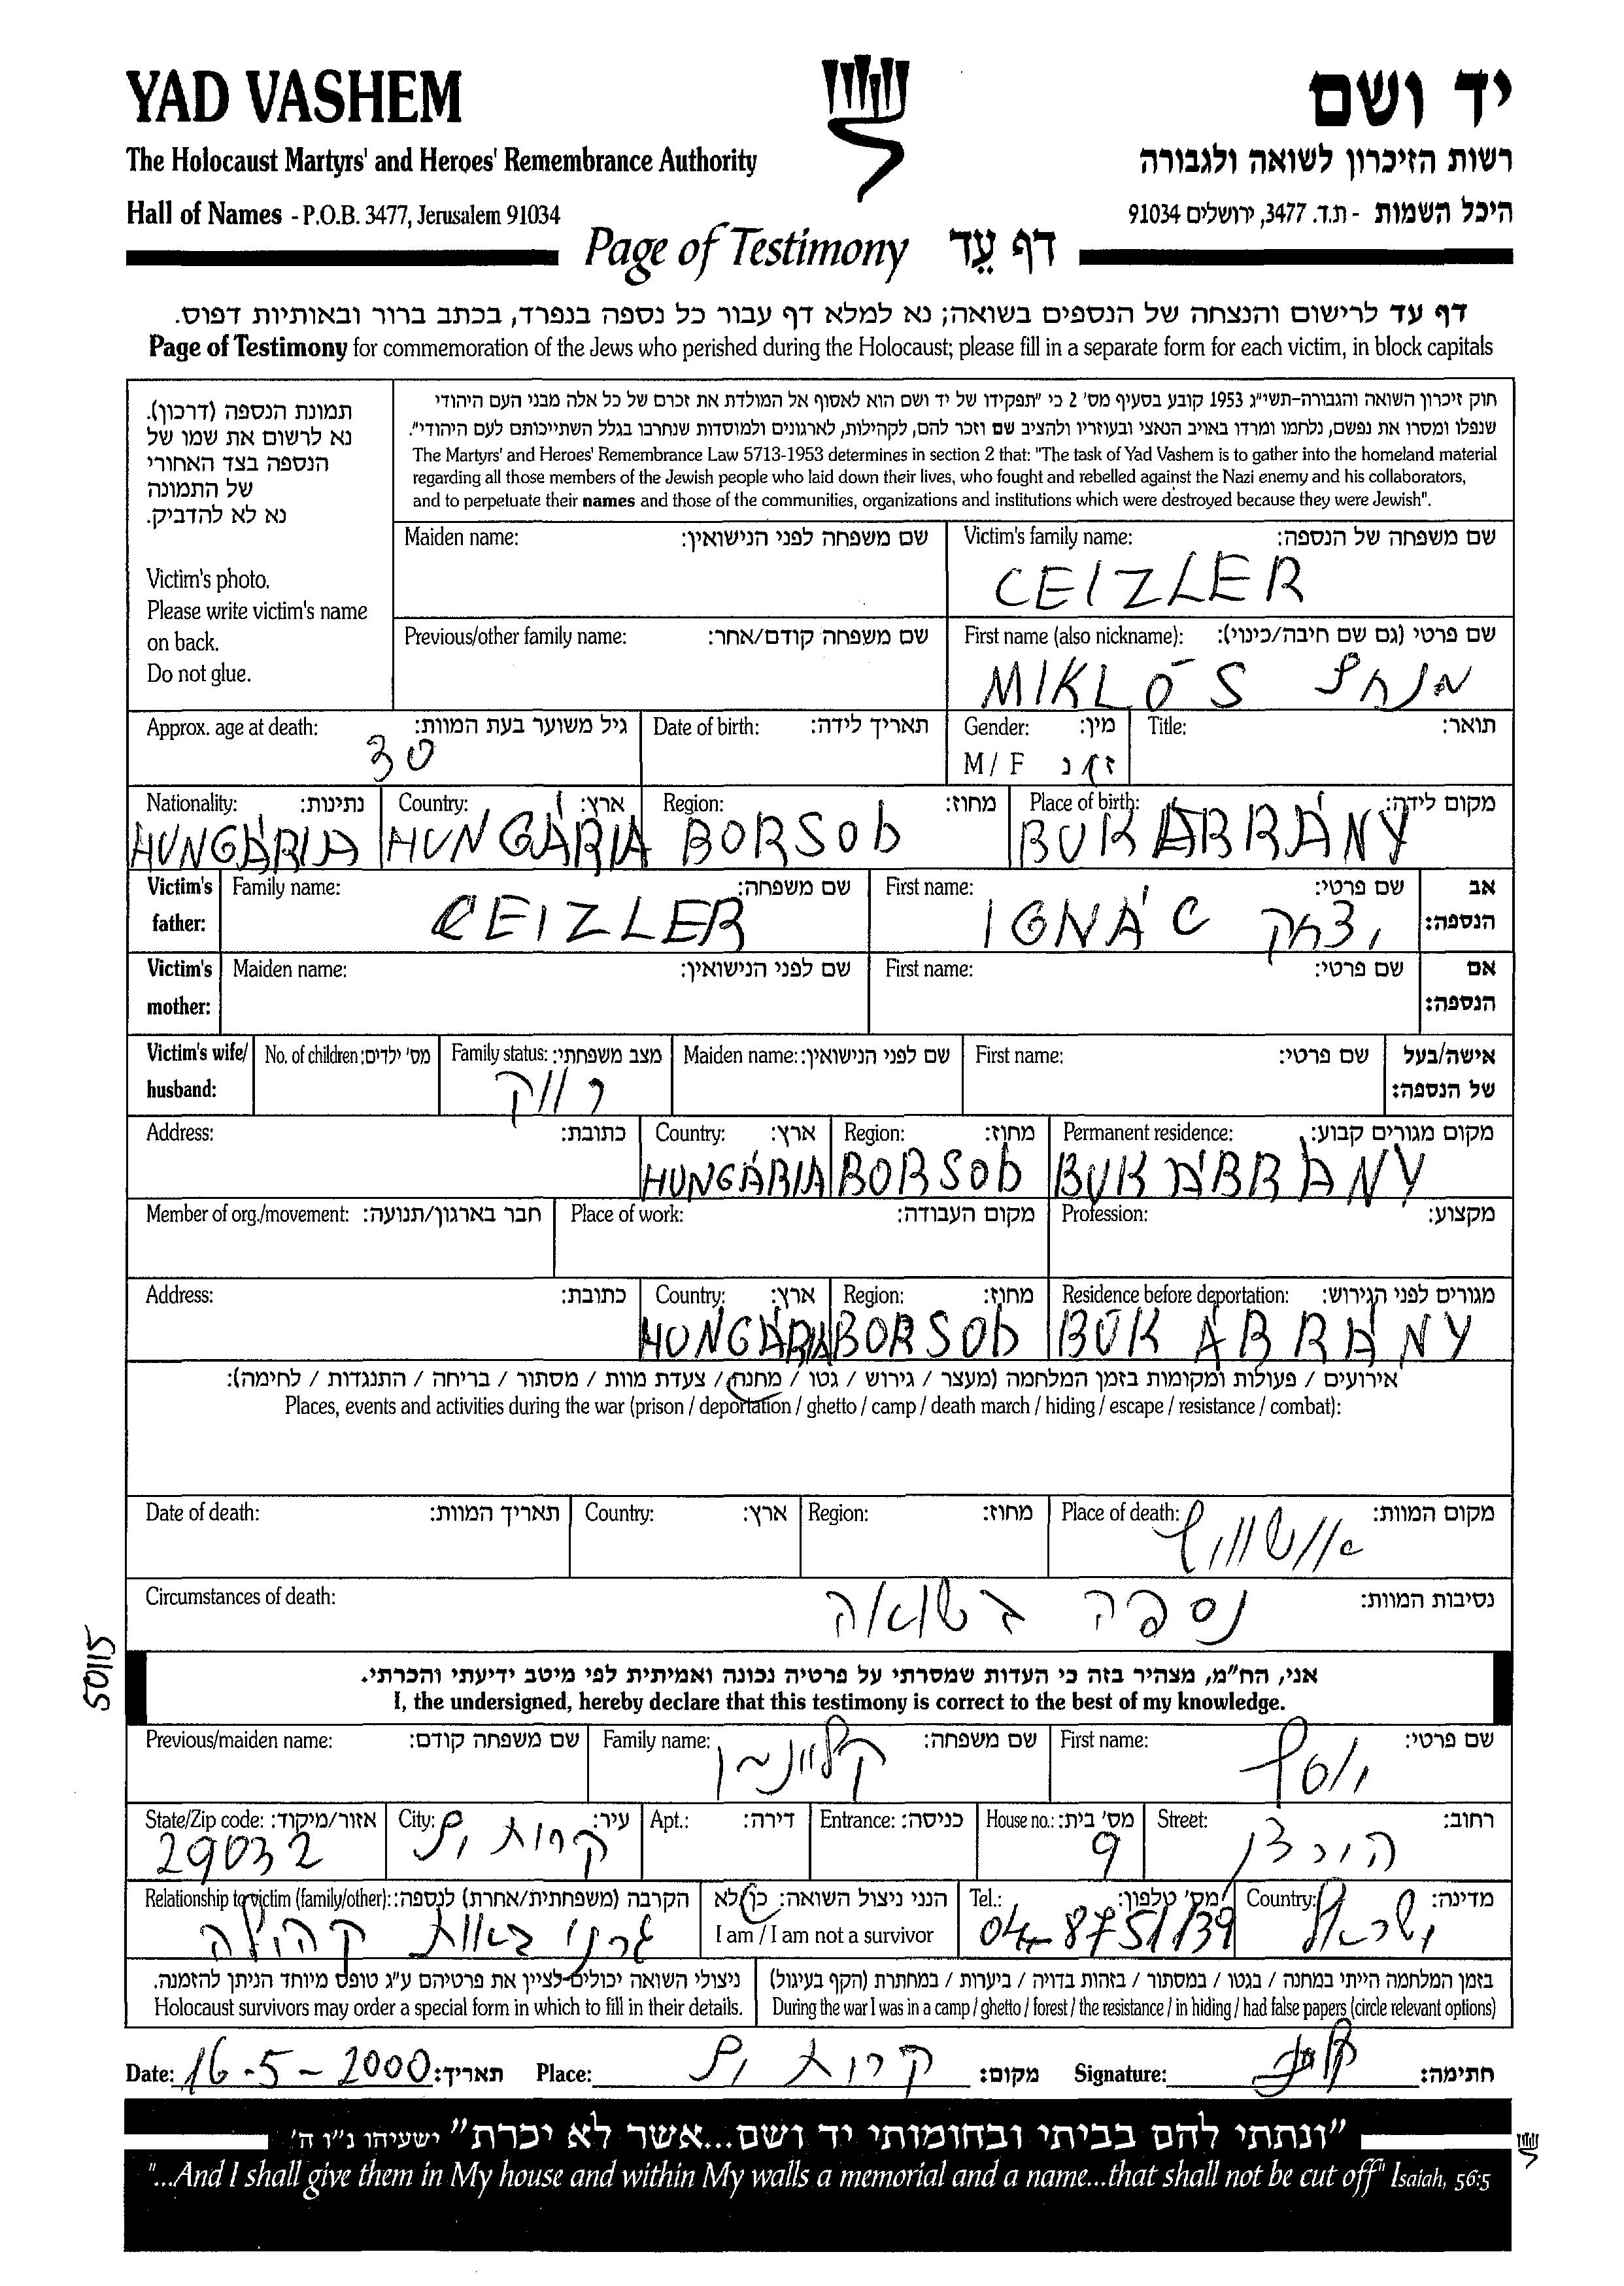 YAD VASHEM
יד ושם
The Holocaust Martyrs' and Heroes' Remembrance Authority
רשות הזיכרון לשואה ולגבורה
Hall of Names - P.O.B. 3477, Jerusalem 91034
היכל השמות - ת.ד. 3477, ירושלים 91034
Page of Testimony דף עֵד
דף עד לרישום והנצחה של הנספים בשואה; נא למלא דף עבור כל נספה בנפרד, בכתב ברור ובאותיות דפוס.
Page of Testimony for commemoration of the Jews who perished during the Holocaust; please fill in a separate form for each victim, in block capitals
תמונת הנספה (דרכון).
נא לרשום את שמו של
הנספה בצד האחורי
של התמונה
נא לא להדביק.
Victim's photo.
Please write victim's name
on back.
Do not glue.
חוק זיכרון השואה והגבורה-תשי"ג 1953 קובע בסעיף מס' 2 כי "תפקידו של יד ושם הוא לאסוף אל המולדת את זכרם של כל אלה מבני העם היהודי
שנפלו ומסרו את נפשם, נלחמו ומרדו באויב הנאצי ובעוזריו ולהציב שם וזכר להם, לקהילות, לארגונים ולמוסדות שנחרבו בגלל השתייכותם לעם היהודי".
The Martyrs' and Heroes' Remembrance Law 5713-1953 determines in section 2 that: "The task of Yad Vashem is to gather into the homeland material
regarding all those members of the Jewish people who laid down their lives, who fought and rebelled against the Nazi enemy and his collaborators,
and to perpetuate their names and those of the communities, organizations and institutions which were destroyed because they were Jewish".
Maiden name: שם משפחה לפני הנישואין:
Victim's family name: שם משפחה של הנספה:
CEIZLER
Previous/other family name: שם משפחה קודם/אחר:
First name (also nickname): שם פרטי (גם שם חיבה/כינוי):
MIKLÓS
Approx. age at death: גיל משוער בעת המוות:
30
Date of birth: תאריך לידה:
Gender: מין:
M / F ז / נ
Title: תואר:
Nationality: נתינות:
HUNGÁRIA
Country: ארץ:
HUNGÁRIA
Region: מחוז:
BORSOD
Place of birth: מקום לידה:
BUKABRÁNY
Victim's father: אב הנספה:
Family name: שם משפחה:
CEIZLER
First name: שם פרטי:
IGNÁC יצחק
Victim's mother: אם הנספה:
Maiden name: שם לפני הנישואין:
First name: שם פרטי:
Victim's wife/ husband: אישה/בעל של הנספה:
No. of children: מס' ילדים:
Family status: מצב משפחתי:
רווק
Maiden name: שם לפני הנישואין:
First name: שם פרטי:
Address: כתובת:
Country: ארץ:
HUNGÁRIA
Region: מחוז:
BORSOD
Permanent residence: מקום מגורים קבוע:
BUKÁBRÁNY
Member of org./movement: חבר בארגון/תנועה:
Place of work: מקום העבודה:
Profession: מקצוע:
Address: כתובת:
Country: ארץ:
HUNGÁRIA
Region: מחוז:
BORSOD
Residence before deportation: מגורים לפני הגירוש:
BÜKÁBRÁNY
אירועים / פעולות ומקומות בזמן המלחמה (מעצר / גירוש / גטו / מחנה / צעדת מוות / מסתור / בריחה / התנגדות / לחימה):
Places, events and activities during the war (prison / deportation / ghetto / camp / death march / hiding / escape / resistance / combat):
Date of death: תאריך המוות:
Country: ארץ:
Region: מחוז:
Place of death: מקום המוות:
אושוויץ
Circumstances of death: נסיבות המוות:
נספה בשואה
50115
אני, הח"מ, מצהיר בזה כי העדות שמסרתי על פרטיה נכונה ואמיתית לפי מיטב ידיעתי והכרתי.
I, the undersigned, hereby declare that this testimony is correct to the best of my knowledge.
Previous/maiden name: שם משפחה קודם:
Family name: שם משפחה:
קליינמן
First name: שם פרטי:
יוסף
State/Zip code: אזור/מיקוד:
29032
City: עיר:
קרית ים
Apt.: דירה:
Entrance: כניסה:
House no.: מס' בית:
9
Street: רחוב:
Relationship to victim (family/other): הקרבה (משפחתית/אחרת) לנספה:
גרנו באות קהילה
הנני ניצול השואה: כן/לא
I am / I am not a survivor
Tel.: מס' טלפון:
04-8751139
Country: מדינה:
ישראל
ניצולי השואה יכולים לציין את פרטיהם ע"ג טופס מיוחד הניתן להזמנה.
Holocaust survivors may order a special form in which to fill in their details.
בזמן המלחמה הייתי במחנה / בגטו / במסתור / בזהות בדויה / ביערות / במחתרת (הקף בעיגול)
During the war I was in a camp / ghetto / forest / the resistance / in hiding / had false papers (circle relevant options)
Date: 16-5-2000 תאריך: Place: קרית ים מקום: Signature: חתימה:
"ונתתי להם בביתי ובחומותי יד ושם...אשר לא יכרת" ישעיהו נ"ו ה'
"...And I shall give them in My house and within My walls a memorial and a name...that shall not be cut off" Isaiah, 56:5